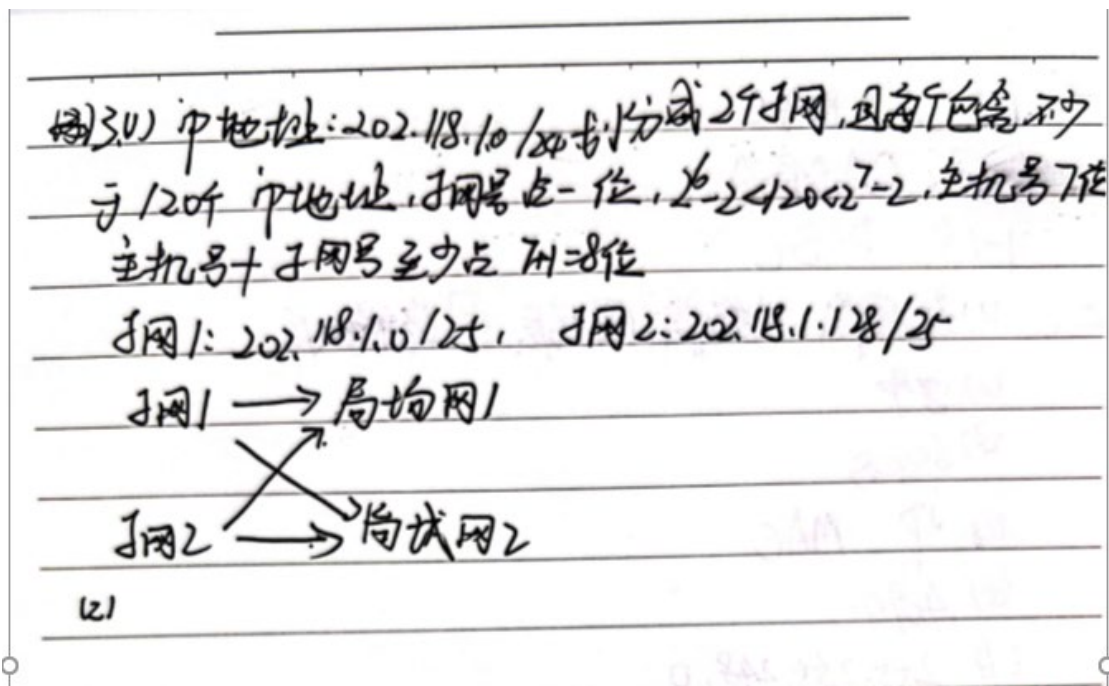 例3.(1) IP地址:202.118.1.0/24划分成2个子网,且每个包含不少
于120个IP地址,子网号占一位,2^6-2<120<2^7-2,主机号7位
主机号+子网号至少占7+1=8位
子网1:202.118.1.0/25, 子网2:202.118.1.128/25
子网1 → 局域网1
子网2 → 局域网2
(2)